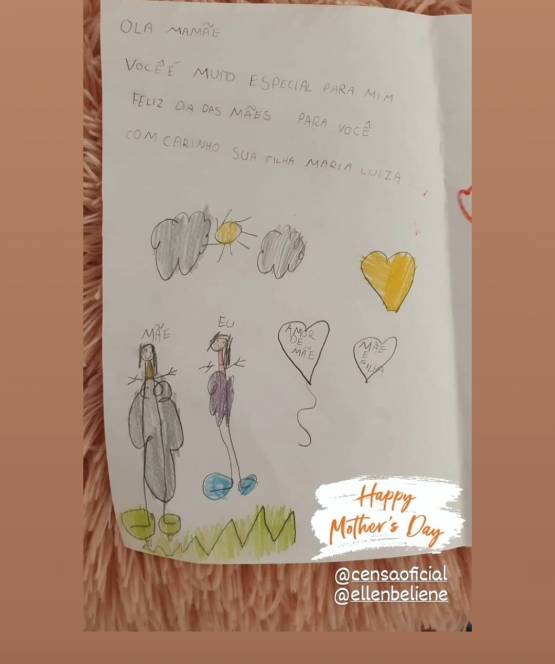 OLA MAMÃE
VOCÊ É MUITO ESPECIAL PARA MIM
FELIZ DIA DAS MÃES PARA VOCÊ
COM CARINHO SUA FILHA MARIA LUIZA
MÃE
EU
AMOR
DE
MÃE
MÃE
E
FILHA
Happy
Mother's Day
@censaoficial
@ellenbeliene